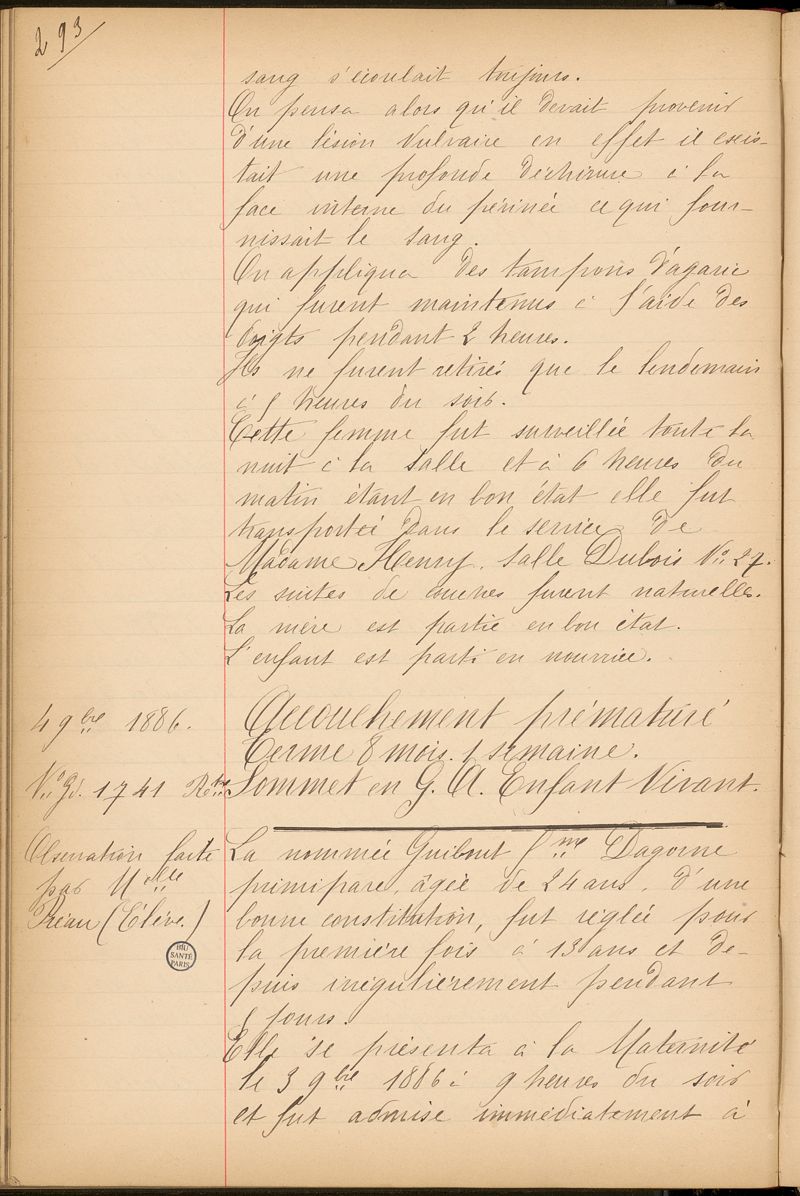 293
sang s'écoulait toujours.
On pensa alors qu'il devait provenir
d'une lésion vulvaire en effet il exis-
tait une profonde déchirure à la
face interne du périnée ce qui four-
nissait le sang.
On appliqua des tampons d'agaric
qui furent maintenus à l'aide des
doigts pendant 2 heures.
Ils ne furent retirés que le lendemain
à heures du soir.
Cette femme fut surveillée toute la
nuit à la salle et à 6 heures du
matin étant en bon état elle fut
transportée dans le service de
Madame Henry. Salle Dubois No 27.
Les suites de couches furent naturelles.
La mère est partie en bon état.
L'enfant est parti en nourrice.
4 9bre 1886.
No Gd. 1741 Rtre
Accouchement prématuré
Terme 8 mois. 1 semaine.
Sommet en G. A. Enfant Vivant.
Observation faite
par Melle
(Élève.)
BIU
SANTÉ
PARIS
La nommée Guibout fme Dagorne
primipare, âgée de 24 ans, d'une
bonne constitution, fut réglée pour
la première fois à 13 ans et de-
puis irrégulièrement pendant
jours.
Elle se présenta à la Maternité
le 3 9bre 1886 à 9 heures du soir
et fut admise immédiatement à